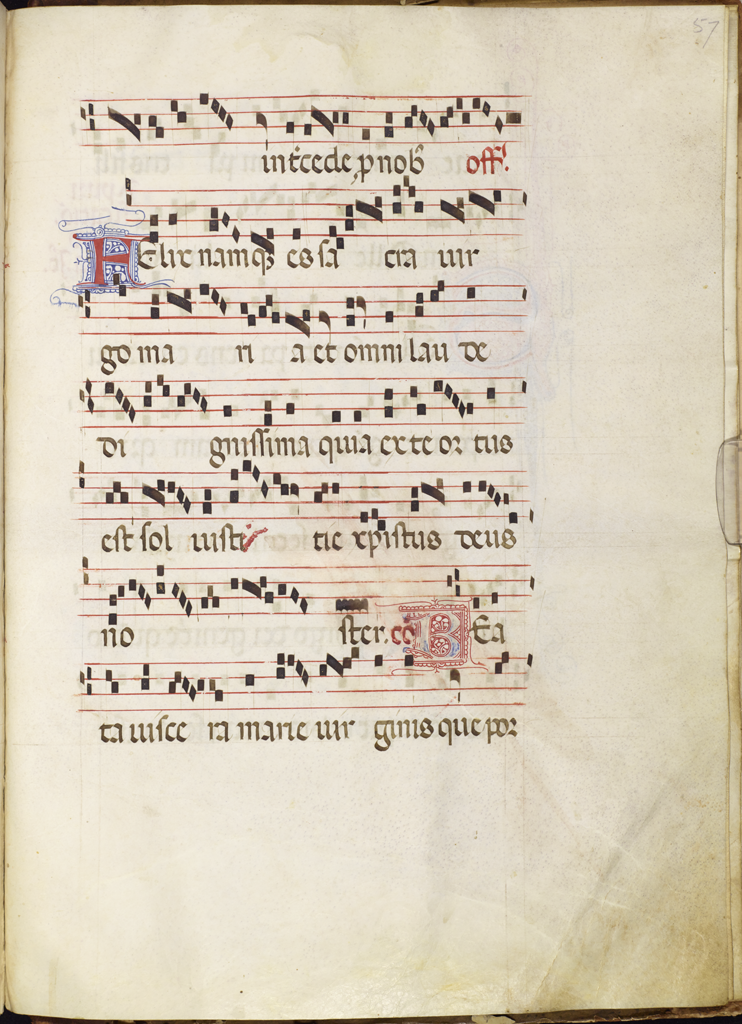 57
int̄cede ꝓ nob̄ off̄.
FElix namq̄ȝ es sa cra uir
go ma ri a et omni lau de
di gnissima quia ex te or tus
est sol iusti tie xp̄istus deus
no ster. cō BEa
ta uisce ra marie uir ginis que por